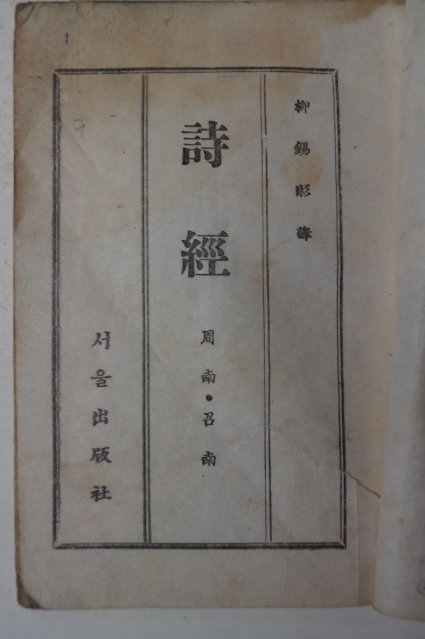 柳錫彬譯
詩經
周南·召南
서울出版社